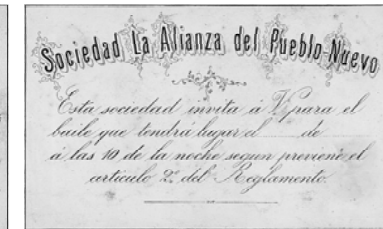 Sociedad La Alianza del Pueblo Nuevo
Esta sociedad invita á V. para el
baile que tendrá lugar el de
á las 10 de la noche segun previene el
artículo 2º del Reglamento.